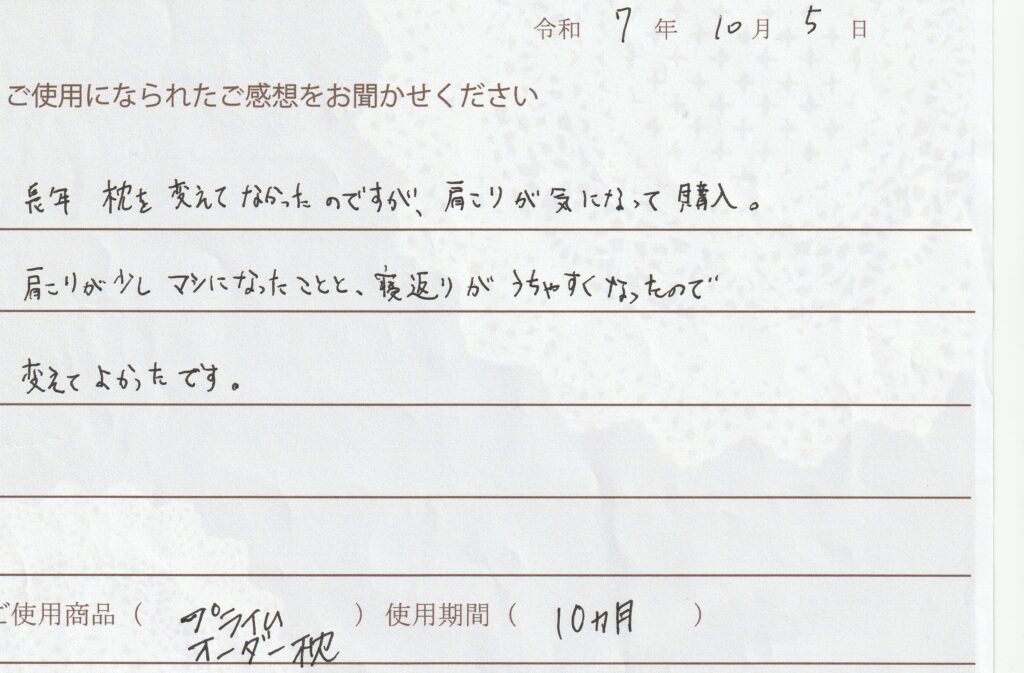 令和 7 年 10 月 5 日
ご使用になられたご感想をお聞かせください
長年 枕を変えてなかったのですが、肩こりが気になって購入。
肩こりが少しマシになったことと、寝返りがうちやすくなったので
変えてよかったです。
ご使用商品（ プライム オーダー枕 ） 使用期間（ 10ヵ月 ）